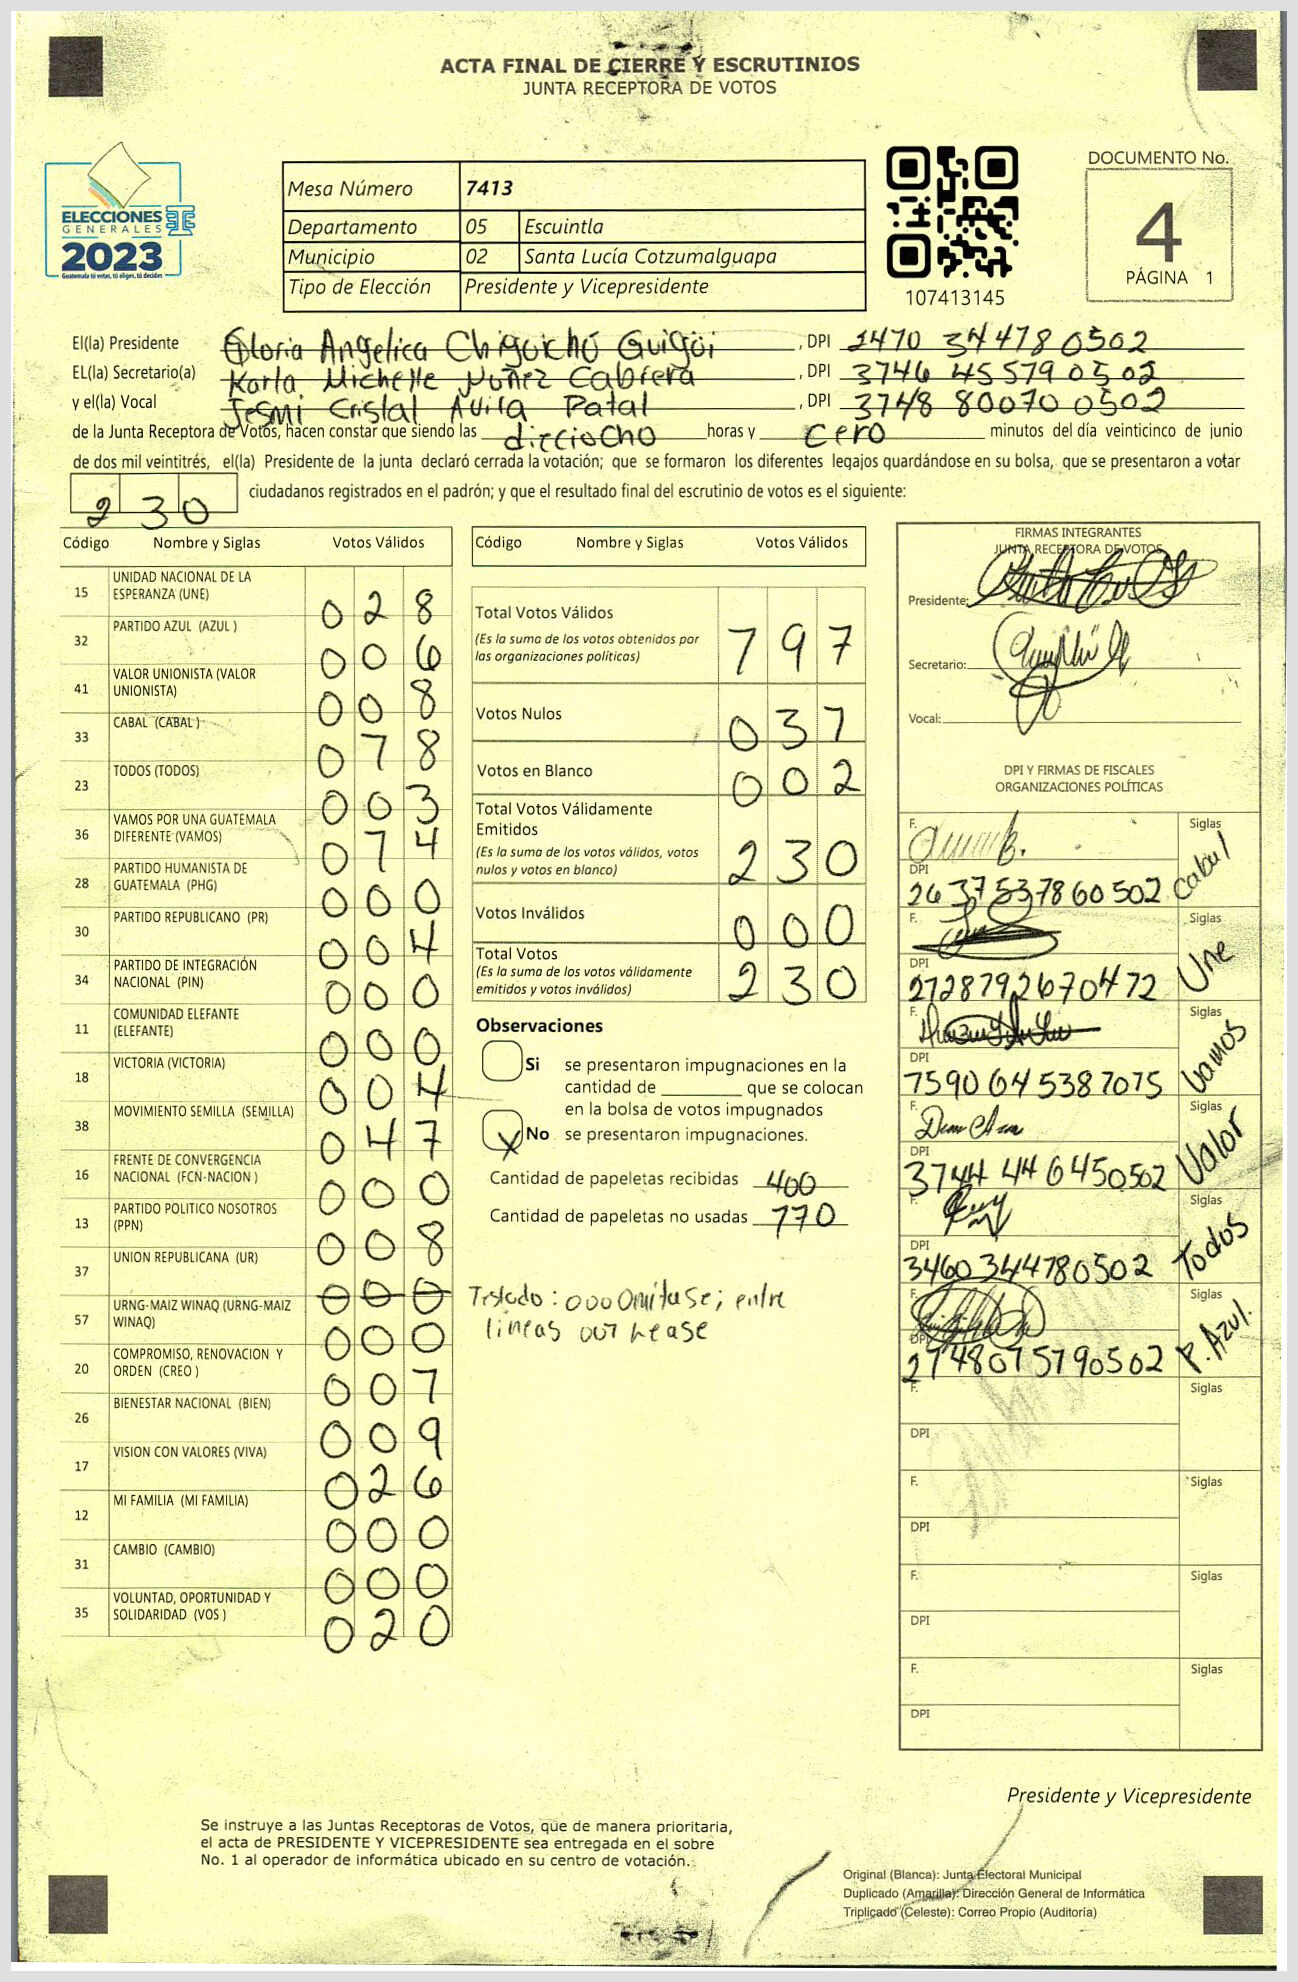 ACTA FINAL DE CIERRE Y ESCRUTINIOS
JUNTA RECEPTORA DE VOTOS
ELECCIONES
GENERALES
2023
Guatemala tú votas, tú eliges, tú decides
Mesa Número 7413
Departamento 05 Escuintla
Municipio 02 Santa Lucía Cotzumalguapa
Tipo de Elección Presidente y Vicepresidente
107413145
DOCUMENTO No.
4
PÁGINA 1
El(la) Presidente Gloria Angelica Chiguichú Guigüi, DPI 2470 34478 0502
EL(la) Secretario(a) Karla Michelle Nuñez Cabrera, DPI 3746 45579 0502
y el(la) Vocal Jesmi Cristal Avila Patal, DPI 3748 80070 0502
de la Junta Receptora de Votos, hacen constar que siendo las dieciocho horas y cero minutos del día veinticinco de junio
de dos mil veintitrés, el(la) Presidente de la junta declaró cerrada la votación; que se formaron los diferentes legajos guardándose en su bolsa, que se presentaron a votar
230 ciudadanos registrados en el padrón; y que el resultado final del escrutinio de votos es el siguiente:
Código Nombre y Siglas Votos Válidos
15 UNIDAD NACIONAL DE LA ESPERANZA (UNE) 028
32 PARTIDO AZUL (AZUL ) 006
41 VALOR UNIONISTA (VALOR UNIONISTA) 008
33 CABAL (CABAL ) 078
23 TODOS (TODOS) 003
36 VAMOS POR UNA GUATEMALA DIFERENTE (VAMOS) 074
28 PARTIDO HUMANISTA DE GUATEMALA (PHG) 000
30 PARTIDO REPUBLICANO (PR) 004
34 PARTIDO DE INTEGRACIÓN NACIONAL (PIN) 000
11 COMUNIDAD ELEFANTE (ELEFANTE) 000
18 VICTORIA (VICTORIA) 004
38 MOVIMIENTO SEMILLA (SEMILLA) 047
16 FRENTE DE CONVERGENCIA NACIONAL (FCN-NACION ) 000
13 PARTIDO POLITICO NOSOTROS (PPN) 008
37 UNION REPUBLICANA (UR) 000
57 URNG-MAIZ WINAQ (URNG-MAIZ WINAQ) 000
20 COMPROMISO, RENOVACION Y ORDEN (CREO ) 007
26 BIENESTAR NACIONAL (BIEN) 009
17 VISION CON VALORES (VIVA) 026
12 MI FAMILIA (MI FAMILIA) 000
31 CAMBIO (CAMBIO) 000
35 VOLUNTAD, OPORTUNIDAD Y SOLIDARIDAD (VOS ) 020
Código Nombre y Siglas Votos Válidos
Total Votos Válidos 797
(Es la suma de los votos obtenidos por
las organizaciones políticas)
Votos Nulos 037
Votos en Blanco 002
Total Votos Válidamente
Emitidos 230
(Es la suma de los votos válidos, votos
nulos y votos en blanco)
Votos Inválidos 000
Total Votos 230
(Es la suma de los votos válidamente
emitidos y votos inválidos)
Observaciones
Si se presentaron impugnaciones en la
cantidad de ________ que se colocan
en la bolsa de votos impugnados
X No se presentaron impugnaciones.
Cantidad de papeletas recibidas 400
Cantidad de papeletas no usadas 770
Testado: 000 Omitase; entre
lineas 007 Lease
FIRMAS INTEGRANTES
JUNTA RECEPTORA DE VOTOS
Presidente:
Secretario:
Vocal:
DPI Y FIRMAS DE FISCALES
ORGANIZACIONES POLÍTICAS
F. Siglas
DPI 2637537860502 Cabal
F. Siglas
DPI 2728792670472 Une
F. Siglas
DPI 7590645387075 Vamos
F. Siglas
DPI 3744446450502 Valor
F. Siglas
DPI 3460344780502 Todos
F. Siglas
DPI 2748075790502 P. Azul.
F. Siglas
DPI
F. Siglas
DPI
F. Siglas
DPI
F. Siglas
DPI
Presidente y Vicepresidente
Se instruye a las Juntas Receptoras de Votos, que de manera prioritaria,
el acta de PRESIDENTE Y VICEPRESIDENTE sea entregada en el sobre
No. 1 al operador de informática ubicado en su centro de votación.
Original (Blanca): Junta Electoral Municipal
Duplicado (Amarilla): Dirección General de Informática
Triplicado (Celeste): Correo Propio (Auditoría)